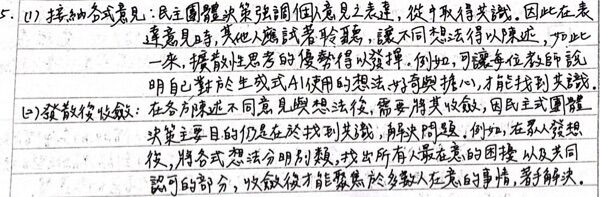 5. (1) 接納各式意見：民主團體決策強調個人意見之表達，從中取得共識。因此在表
達意見時，其他人應試著聆聽，讓不同想法得以陳述，如此
一來，擴散性思考的優勢得以發揮。例如，可讓每位教師說
明自己對於生成式AI使用的想法、好奇與擔心，才能找到共識。
(2) 發散後收斂：在各方陳述不同意見與想法後，需要將其收斂，因民主式團體
決策主要目的仍是在於找到共識，解決問題，例如，在眾人發想
後，將各式想法分明別類，找出所有人最在意的困擾以及共同
認可的部分，收斂後才能聚焦於多數人在意的事情，著手解決。